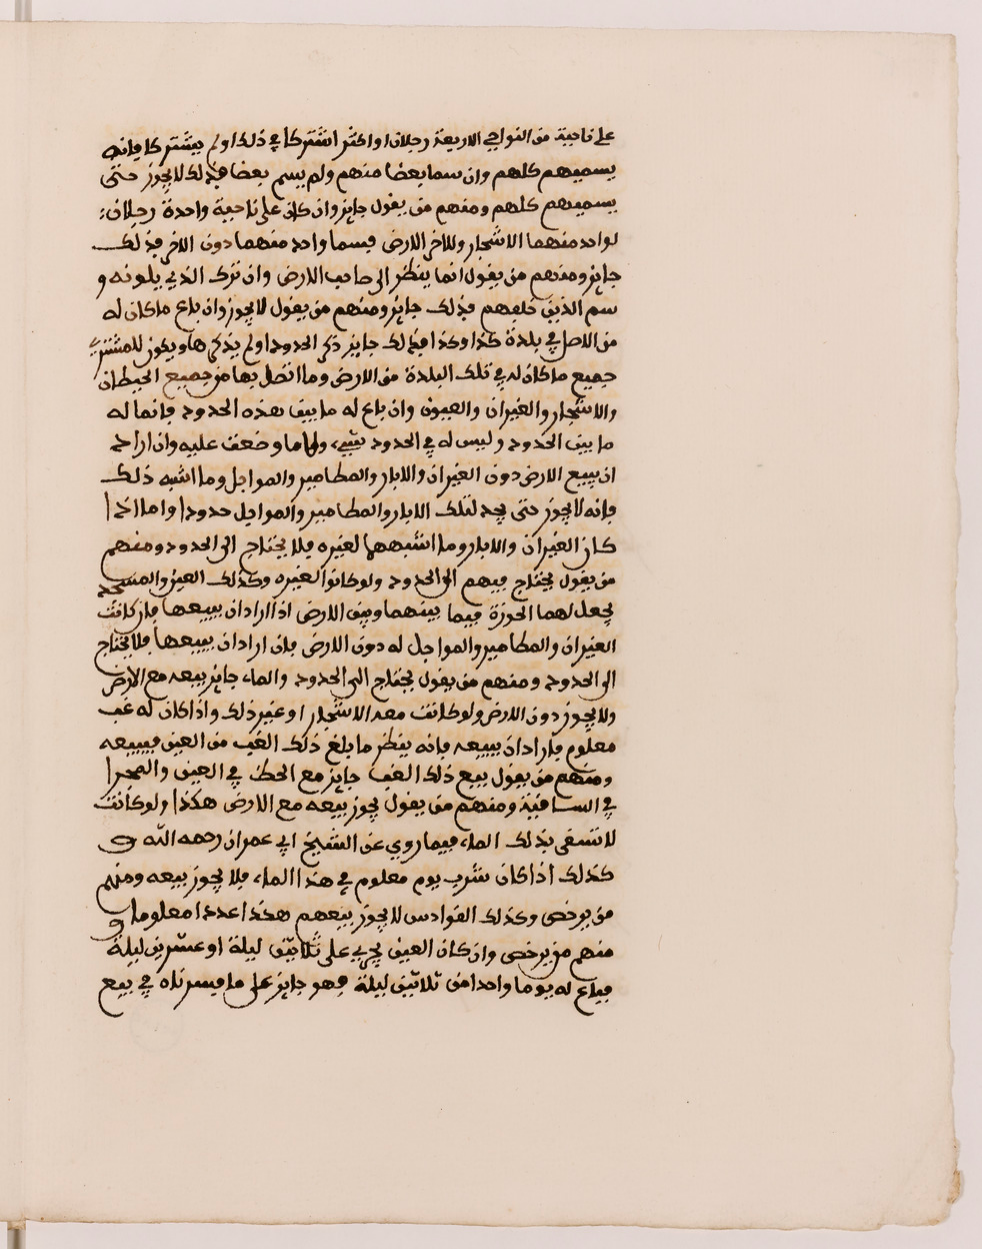 على ناحية من النواحي الاربعة رجلان او اكثر اشتركا في ذلك او لم يشتركا فانه
يسميهم كلهم وان سما بعضا منهم ولم يسم بعضا فذلك لا يجوز حتى
يسميهم كلهم ومنهم من يقول جايز وان كان على ناحية واحدة رجلان
لواحد منهما الاشجار وللاخر الارض فسما واحد منهما دون الاخر فذلك
جايز ومنهم من يقول انما ينظر الى صاحب الارض وان ترك الذي يلونه و
سم الذين خلفهم فذلك جايز ومنهم من يقول لا يجوز وان باع ما كان له
من الاصل في بلدة كذا وكذا فذلك جايز ذكر الحدود او لم يذكرها ويكون للمشتري
جميع ما كان له في تلك البلدة من الارض وما اتصل بها من جميع الحيطان
والاشجار والغيران والعيون وان باع له ما بين هذه الحدود فانما له
ما بين الحدود وليس له في الحدود شيء، ولا ما وضعت عليه وان اراد
ان يبيع الارض دون الغيران والابار والمطامير والمواجل وما اشبه ذلك
فانه لا يجوز حتى يحد لتلك الابار والمطامير والمواجل حدودا واما اذا
كان الغيران والابار وما اشبهها لغيره فلا يحتاج الى الحدود ومنهم
من يقول يحتاج فيهم الى الحدود ولو كانوا لغيره وكذلك العين والمسجد
يجعل لهما الحوزة فيما بينهما وبين الارض اذا اراد ان يبيعها فان كانت
الغيران والمطامير والمواجل له دون الارض فان اراد ان يبيعها فلا يحتاج
الى الحدود ومنهم من يقول يحتاج الى الحدود والماء جايز بيعه مع الارض
ولا يجوز دون الارض ولو كانت معه الاشجار او غير ذلك واذا كان له غب
معلوم فاراد ان يبيعه فانه ينظر ما بلغ ذلك الغب من العين فيبيعه
ومنهم من يقول بيع ذلك الغب جايز مع الحظ في العين والمجرا
في الساقية ومنهم من يقول يجوز بيعه مع الارض هكذا ولو كانت
لا تسقى بذلك الماء فيما روي عن الشيخ ابي عمران رحمه الله و
كذلك اذا كان شرب يوم معلوم في هذا الماء فلا يجوز بيعه ومنهم
من يرخص وكذلك القوادس لا يجوز بيعهم هكذا عددا معلوما و
منهم من يرخص وان كان العين يجري على ثلاثين ليلة او عشرين ليلة
فباع له يوما واحدا من ثلاثين ليلة فهو جايز على ما فسرناه في بيع